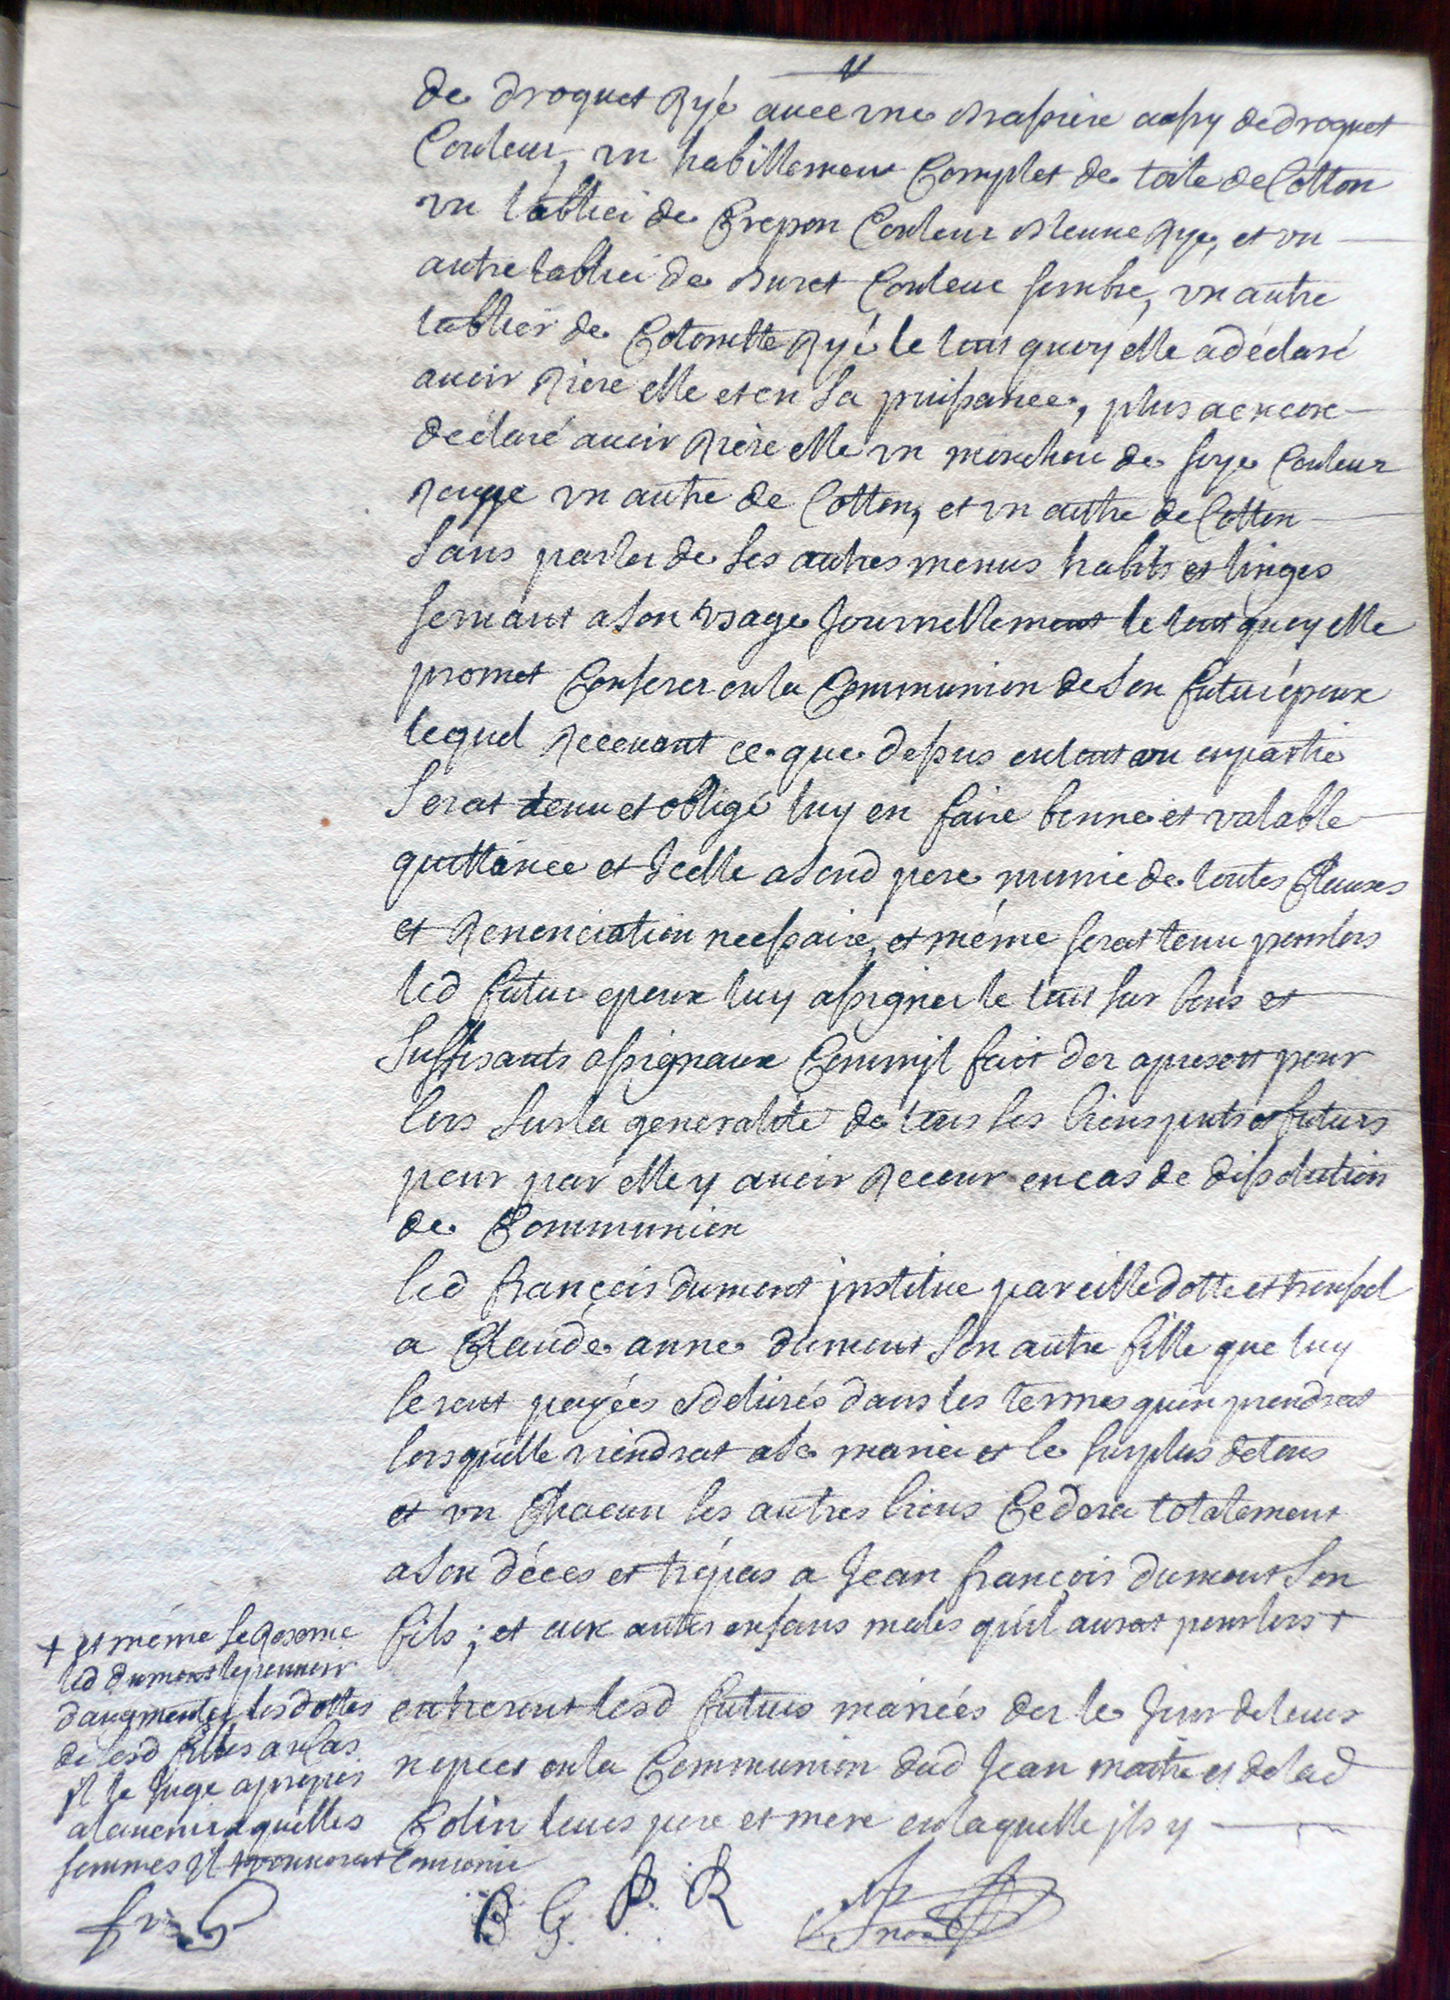 de droguet Ryé avec une brassiere aussy de droguet
Couleur, un habillement Complet de toile de Cotton
un tablier de Crepon Couleur bleuue Rye, et un
autre tablier de buret Couleur sombre, un autre
tablier de Cotonette Ryé le tout quoy elle a déclaré
avoir Riere elle et en sa puissance, plus a encore
declaré avoir Riere elle un mouchoir de soye Couleur
Rouge un autre de Cotton, et un autre de Cotton
sans parler de ses autres menus habits et linges
servant a son usage Journellement le tout quoy elle
promet Conferer en la Communion de son futur époux
lequel Recevant ce que dessus en tout ou en partie
serat tenu et obligé luy en faire bonne et valable
quittance et Icelle a sond pere munie de toutes Clauses
et Renonciation necessaire, et méme serat tenu pourlors
led futur epoux luy assigner le tout sur bons et
suffisants assignaux Comm'jl fait der apresent pour
lors sur la generalité de tous ses biens pnts et futurs
pour par elle y avoir Recour en cas de dissolution
de Communion
led françois dumont jnstitue pareille dotte et troussel
a Claude anne dumont son autre fille que luy
seront payées et delivrés dans les termes qu'en prendrat
lorsqu'elle viendrat a se marier et le surplus de tous
et un Chacun ses autres biens Cedera totalement
a son déces et trépas a Jean françois dumont son
fils ; et aux autres enfans males qu'il aurat pourlors +
+ et méme se Reserve
led dumont le pouvoir
d'augmenter les dottes
de lesd filles au Cas
jl le Juge apropos
a l'avenir a quelles
sommes jl trouverat Convenir
entreront lesd futurs mariées der le Jour de leurs
nopces en la Communion dud Jean maitre et de lad
Colin leurs pere et mere en laquelle jls y
B G. P. R